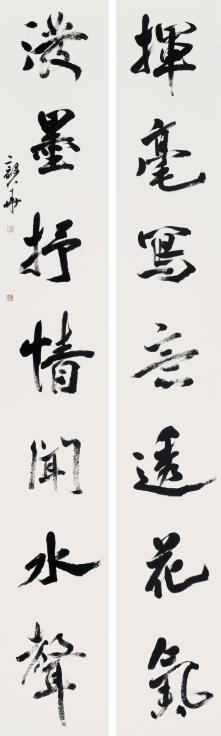 揮毫寫意透花氣
潑墨抒情聞水聲